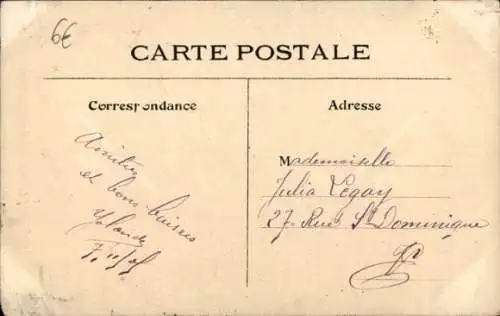 6€
CARTE POSTALE
Correspondance
Adresse
Amitiés
et bons baisers
Yolande
Mademoiselle
Julia Legay
27 Rue St Dominique